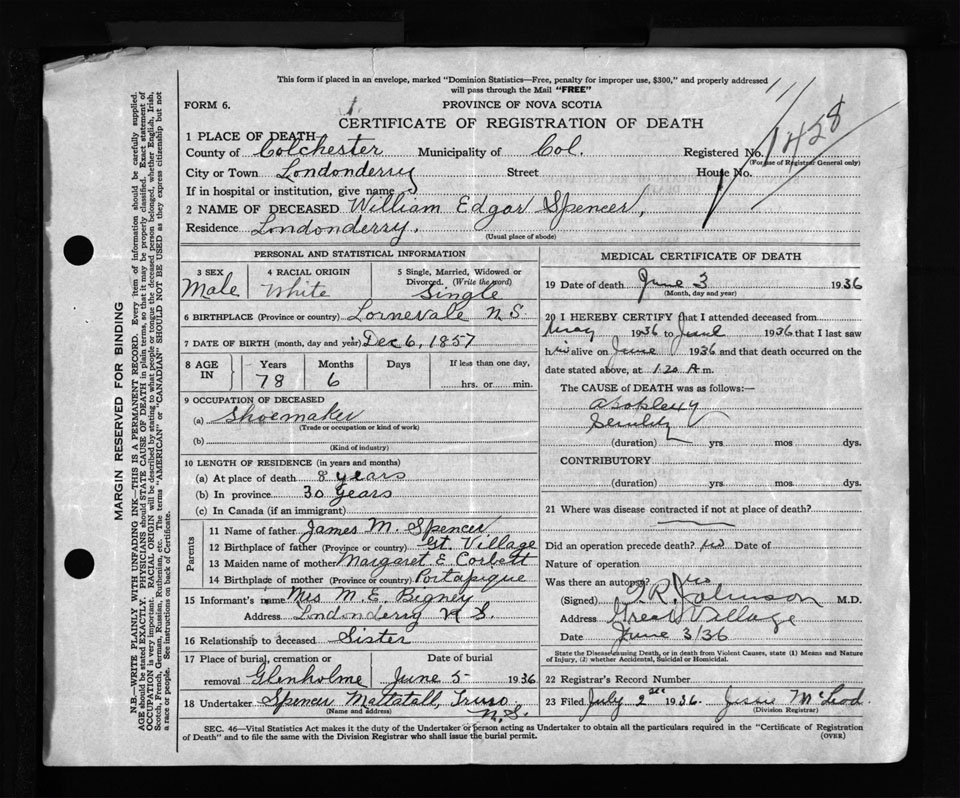 This form if placed in an envelope, marked "Dominion Statistics—Free, penalty for improper use, $300," and properly addressed
will pass through the Mail "FREE"
FORM 6.
PROVINCE OF NOVA SCOTIA
CERTIFICATE OF REGISTRATION OF DEATH
1428
1 PLACE OF DEATH
County of Colchester Municipality of Col. Registered No.
(For use of Registrar General only)
City or Town Londonderry Street House No.
If in hospital or institution, give name
2 NAME OF DECEASED William Edgar Spencer,
Residence Londonderry.
(Usual place of abode)
PERSONAL AND STATISTICAL INFORMATION
3 SEX 4 RACIAL ORIGIN 5 Single, Married, Widowed or
Divorced. (Write the word)
Male White Single
6 BIRTHPLACE (Province or country) Lornevale N S.
7 DATE OF BIRTH (month, day and year) Dec 6, 1857
8 AGE IN Years Months Days If less than one day,
78 6 hrs. or min.
9 OCCUPATION OF DECEASED
(a) Shoemaker
(Trade or occupation or kind of work)
(b)
(Kind of industry)
10 LENGTH OF RESIDENCE (in years and months)
(a) At place of death 8 years
(b) In province 30 years
(c) In Canada (if an immigrant)
Parents
11 Name of father James M. Spencer
12 Birthplace of father (Province or country) Gt. Village
13 Maiden name of mother Margaret E Corbett
14 Birthplace of mother (Province or country) Portapique
15 Informant's name Mrs M. E. Bigney
Address Londonderry N S.
16 Relationship to deceased Sister
17 Place of burial, cremation or Date of burial
removal Glenholme June 5 1936
18 Undertaker Spencer Mattatall, Truro
N.S.
(Name and address)
MEDICAL CERTIFICATE OF DEATH
19 Date of death June 3 1936
(Month, day and year)
20 I HEREBY CERTIFY that I attended deceased from
May 1936 to June 1936 that I last saw
him alive on June 1936 and that death occurred on the
date stated above, at 1.20 A m.
The CAUSE OF DEATH was as follows:—
apoplexy
Senility
(duration) yrs. mos. dys.
CONTRIBUTORY
(duration) yrs. mos. dys.
21 Where was disease contracted if not at place of death?
Did an operation precede death? no Date of
Nature of operation
Was there an autopsy? no
(Signed) Johnson M.D.
Address Great Village
Date June 3/36
State the Disease causing Death, or in death from Violent Causes, state (1) Means and Nature
of Injury, (2) whether Accidental, Suicidal or Homicidal.
22 Registrar's Record Number
23 Filed July 2nd 1936. Jessie McLeod
(Division Registrar)
SEC. 46—Vital Statistics Act makes it the duty of the Undertaker or person acting as Undertaker to obtain all the particulars required in the "Certificate of Registration
of Death" and to file the same with the Division Registrar who shall issue the burial permit.
(OVER)
MARGIN RESERVED FOR BINDING
N.B.—WRITE PLAINLY WITH UNFADING INK—THIS IS A PERMANENT RECORD. Every item of information should be carefully supplied.
AGE should be stated EXACTLY. PHYSICIANS should STATE CAUSE OF DEATH in plain terms, so that it may be properly classified. Exact statement of
OCCUPATION is very important. RACIAL ORIGIN will be described by stating to what people or tongue the deceased person belonged, whether English, Irish,
Scotch, French, German, Russian, Ruthenian, etc. The terms "AMERICAN" or "CANADIAN" SHOULD NOT BE USED as they express citizenship but not
a race or people. See instructions on back of Certificate.